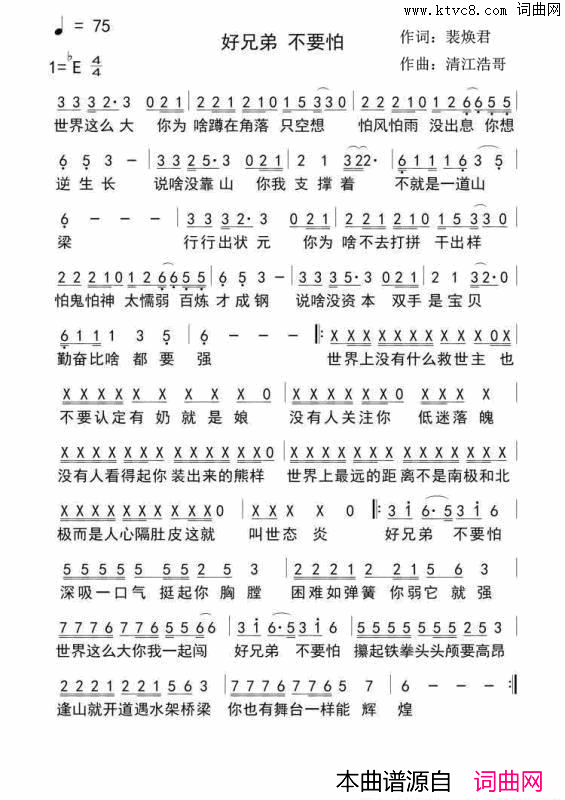 www.ktvc8.com 词曲网
♩ = 75
好兄弟 不要怕
作词：裴焕君
1=♭E 4/4
作曲：清江浩哥
3 3 3 2· 3 0 2 1 | 2 2 2 1 0 1 5 3 3 0 | 2 2 2 1 0 1 2 6 6 5 5 |
世界这么大 你为 啥蹲在角落 只空想 怕风怕雨 没出息 你想
6 5 3 - | 3 3 2 5· 3 0 2 1 | 2 1 3 2 2 · | 6 1 1 1 6 3 5 |
逆生长 说啥没靠山 你我 支撑着 不就是一道山
6 - - - | 3 3 3 2· 3 0 2 1 | 2 2 2 1 0 1 5 3 3 0 |
梁 行行出状元 你为 啥不去打拼 干出样
2 2 2 1 0 1 2 6 6 5 5 | 6 5 3 - | 3 3 2 5· 3 0 2 1 | 2 1 3 2 0 |
怕鬼怕神 太懦弱 百炼 才成钢 说啥没资本 双手 是宝贝
6 1 1 1 3 5 | 6 - - - |: X X X X X X X X 0 X |
勤奋比啥 都要 强 世界上没有什么救世主 也
X X X X X X X 0 | X X X X X X X X X |
不要认定有 奶就是娘 没有人关注你 低迷落魄
X X X X X X X X X X X 0 | X X X X X X X X X X X X |
没有人看得起你装出来的熊样 世界上最远的距 离不是南极和北
X X X X X X X X X X X 0 | X X X X 0 |: 3 i 6· 5 3 i 6 |
极而是人心隔肚皮这就 叫世态 炎 好兄弟 不要怕
5 5 5 5 5 2 2 5 3 | 2 2 2 2 1 2 2 1 5 6 3 |
深吸一口气 挺起你胸膛 困难如弹簧 你弱它就强
7 7 7 6 7 7 6 7 5 6 | 3 i 6· 5 3 i 6 | 5 5 5 5 5 5 5 5 2 5 3 |
世界这么大你我一起闯 好兄弟 不要怕 攥起铁拳头头颅要高昂
2 2 2 1 2 2 2 1 5 6 3 | 7 7 7 6 7 7 6 7 5 | 6 - - - :|
逢山就开道遇水架桥梁 你也有舞台一样能 辉 煌
本曲谱源自 词曲网